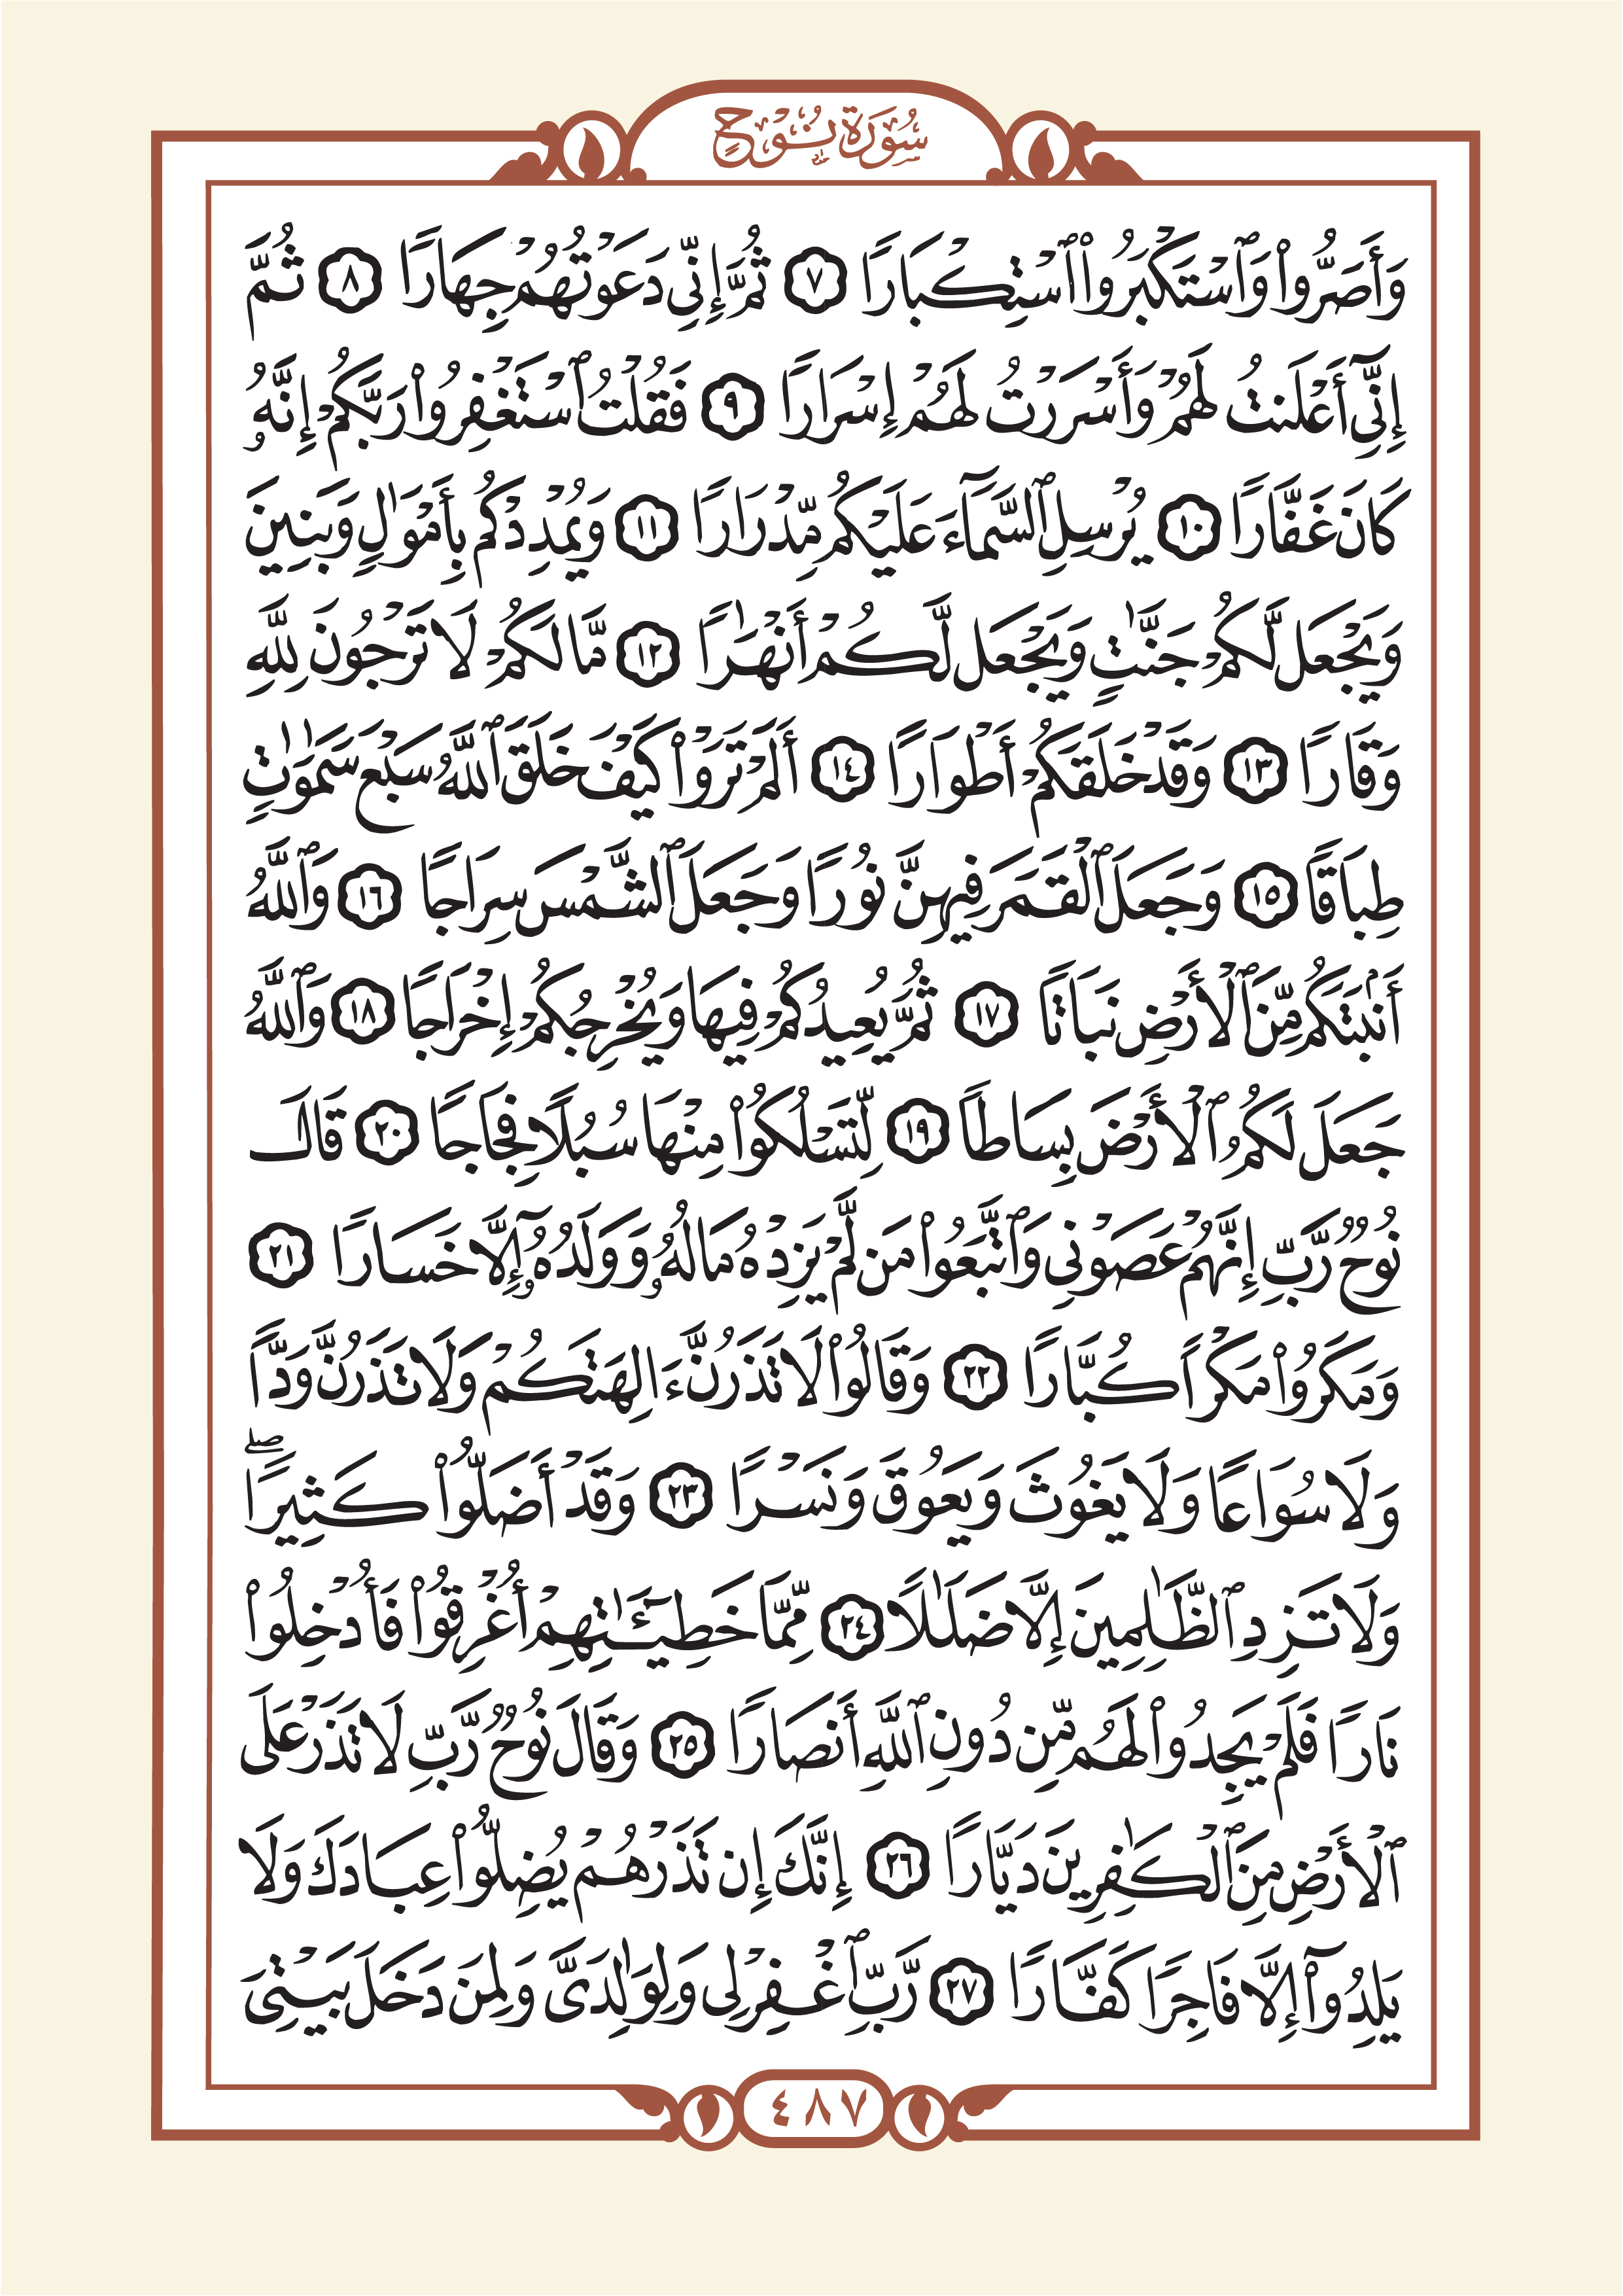 سُورَةُ نُوحٍ
وَأَصَرُّوا۟ وَٱسْتَكْبَرُوا۟ ٱسْتِكْبَارًا ٧ ثُمَّ إِنِّى دَعَوْتُهُمْ جِهَارًا ٨ ثُمَّ
إِنِّىٓ أَعْلَنتُ لَهُمْ وَأَسْرَرْتُ لَهُمْ إِسْرَارًا ٩ فَقُلْتُ ٱسْتَغْفِرُوا۟ رَبَّكُمْ إِنَّهُۥ
كَانَ غَفَّارًا ١٠ يُرْسِلِ ٱلسَّمَآءَ عَلَيْكُم مِّدْرَارًا ١١ وَيُمْدِدْكُم بِأَمْوَٰلٍ وَبَنِينَ
وَيَجْعَل لَّكُمْ جَنَّٰتٍ وَيَجْعَل لَّكُمْ أَنْهَٰرًا ١٢ مَّا لَكُمْ لَا تَرْجُونَ لِلَّهِ
وَقَارًا ١٣ وَقَدْ خَلَقَكُمْ أَطْوَارًا ١٤ أَلَمْ تَرَوْا۟ كَيْفَ خَلَقَ ٱللَّهُ سَبْعَ سَمَٰوَٰتٍ
طِبَاقًا ١٥ وَجَعَلَ ٱلْقَمَرَ فِيهِنَّ نُورًا وَجَعَلَ ٱلشَّمْسَ سِرَاجًا ١٦ وَٱللَّهُ
أَنۢبَتَكُم مِّنَ ٱلْأَرْضِ نَبَاتًا ١٧ ثُمَّ يُعِيدُكُمْ فِيهَا وَيُخْرِجُكُمْ إِخْرَاجًا ١٨ وَٱللَّهُ
جَعَلَ لَكُمُ ٱلْأَرْضَ بِسَاطًا ١٩ لِّتَسْلُكُوا۟ مِنْهَا سُبُلًا فِجَاجًا ٢٠ قَالَ
نُوحٌ رَّبِّ إِنَّهُمْ عَصَوْنِى وَٱتَّبَعُوا۟ مَن لَّمْ يَزِدْهُ مَالُهُۥ وَوَلَدُهُۥٓ إِلَّا خَسَارًا ٢١
وَمَكَرُوا۟ مَكْرًا كُبَّارًا ٢٢ وَقَالُوا۟ لَا تَذَرُنَّ ءَالِهَتَكُمْ وَلَا تَذَرُنَّ وَدًّا
وَلَا سُوَاعًا وَلَا يَغُوثَ وَيَعُوقَ وَنَسْرًا ٢٣ وَقَدْ أَضَلُّوا۟ كَثِيرًا ۖ
وَلَا تَزِدِ ٱلظَّٰلِمِينَ إِلَّا ضَلَٰلًا ٢٤ مِّمَّا خَطِيٓـَٰٔتِهِمْ أُغْرِقُوا۟ فَأُدْخِلُوا۟
نَارًا فَلَمْ يَجِدُوا۟ لَهُم مِّن دُونِ ٱللَّهِ أَنصَارًا ٢٥ وَقَالَ نُوحٌ رَّبِّ لَا تَذَرْ عَلَى
ٱلْأَرْضِ مِنَ ٱلْكَٰفِرِينَ دَيَّارًا ٢٦ إِنَّكَ إِن تَذَرْهُمْ يُضِلُّوا۟ عِبَادَكَ وَلَا
يَلِدُوٓا۟ إِلَّا فَاجِرًا كَفَّارًا ٢٧ رَّبِّ ٱغْفِرْ لِى وَلِوَٰلِدَىَّ وَلِمَن دَخَلَ بَيْتِىَ
٤٨٧